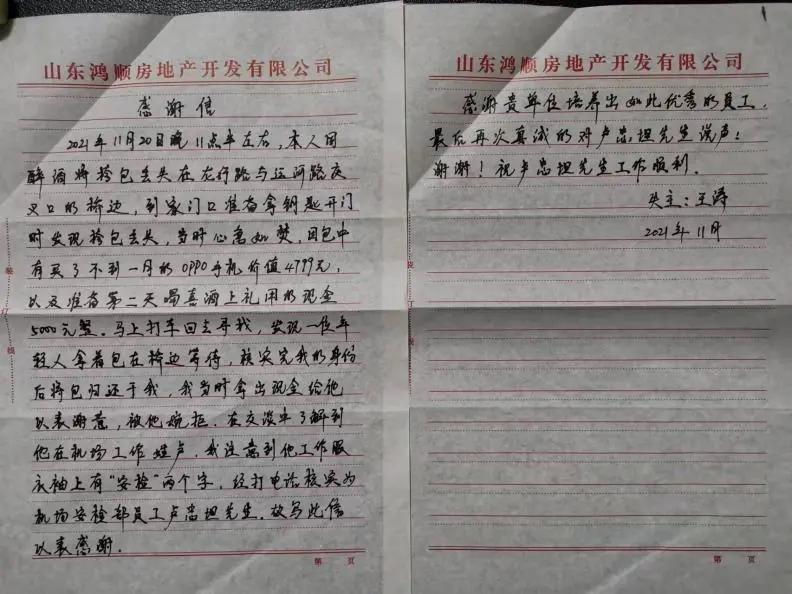 山东鸿顺房地产开发有限公司
感谢信
2021年11月20日晚11点半左右,本人因
醉酒将挎包丢失在车行路与运河路交
叉口的桥边,到家门口准备拿钥匙开门
时发现挎包丢失,当时心急如焚,因包中
有买了不到一月的OPPO手机价值4799元,
以及准备第二天喝喜酒上礼用的现金
5000元整。马上打车回去寻找,发现一位年
轻人拿着包在桥边等待,核实完我的身份
后将包归还于我,我当时拿出现金给他
以表谢意,被他婉拒.在交谈中了解到
他在机场工作,我注意到他工作服
衣袖上有“安检”两个字,经打电话核实为
机场安检部员工卢忠坦先生.故写此信
以表感谢.
第 页
装
订
线
山东鸿顺房地产开发有限公司
感谢贵单位培养出如此优秀的员工,
最后再次真诚的对卢忠坦先生说声:
谢谢!祝卢忠坦先生工作顺利.
失主:王涛
2021年11月
第 页
装
订
线